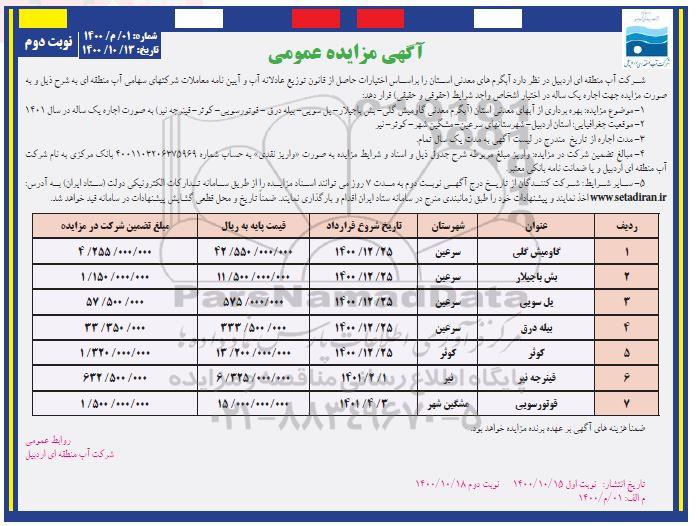 شماره: ۰۱/م/۱۴۰۰
تاریخ: ۱۴۰۰/۱۰/۱۳
نوبت دوم
آگهی مزایده عمومی
شرکت آب منطقه ای اردبیل
شرکت آب منطقه ای اردبیل در نظر دارد آبگرم های معدنی استان را براساس اختیارات حاصل از قانون توزیع عادلانه آب و آیین نامه معاملات شرکتهای سهامی آب منطقه ای به شرح ذیل و به
صورت مزایده جهت اجاره یک ساله در اختیار اشخاص واجد شرایط (حقوقی و حقیقی) قرار دهد:
۱- موضوع مزایده: بهره برداری از آبهای معدنی استان (آبگرم معدنی گاومیش گلی- بش باجیلار- یل سویی- بیله درق - قوتورسویی- کوثر- قینرجه نیر) به صورت اجاره یک ساله در سال ۱۴۰۱
۲- موقعیت جغرافیایی: استان اردبیل- شهرستانهای سرعین- مشگین شهر- کوثر- نیر
۳- مدت اجاره از تاریخ مندرج در لیست آگهی به مدت یک سال تمام.
۴- مبالغ تضمین شرکت در مزایده: واریز مبلغ مربوطه شرح جدول ذیل و اسناد و شرایط مزایده به صورت «واریز نقدی» به حساب شماره ۴۰۰۱۱۰۳۲۰۶۳۷۵۹۶۹ بانک مرکزی به نام شرکت
آب منطقه ای اردبیل و یا ضمانت نامه بانکی معتبر.
۵- سایر شرایط: شرکت کنندگان از تاریخ درج آگهی نوبت دوم به مدت ۷ روز می توانند اسناد مزایده را از طریق سامانه تدارکات الکترونیکی دولت (ستاد ایران) به آدرس:
www.setadiran.ir اخذ نمایند و پیشنهادات خود را طبق زمانبندی مندرج در سامانه ستاد ایران اقدام و بارگذاری نمایند. ضمناً تاریخ و محل قطعی گشایش پیشنهادات در سامانه قید خواهد شد.
ردیف عنوان شهرستان تاریخ شروع قرارداد قیمت پایه به ریال مبلغ تضمین شرکت در مزایده
۱ گاومیش گلی سرعین ۱۴۰۰/۱۲/۲۵ ۴۲/۵۵۰/۰۰۰/۰۰۰ ۴/۲۵۵/۰۰۰/۰۰۰
۲ بش باجیلار سرعین ۱۴۰۰/۱۲/۲۵ ۱۱/۵۰۰/۰۰۰/۰۰۰ ۱/۱۵۰/۰۰۰/۰۰۰
۳ یل سویی سرعین ۱۴۰۰/۱۲/۲۵ ۵۷۵/۰۰۰/۰۰۰ ۵۷/۵۰۰/۰۰۰
۴ بیله درق سرعین ۱۴۰۰/۱۲/۲۵ ۳۳۳/۵۰۰/۰۰۰ ۳۳/۳۵۰/۰۰۰
۵ کوثر کوثر ۱۴۰۰/۱۲/۲۵ ۱۳/۲۰۰/۰۰۰/۰۰۰ ۱/۳۲۰/۰۰۰/۰۰۰
۶ قینرجه نیر نیر ۱۴۰۱/۲/۱ ۶/۳۲۵/۰۰۰/۰۰۰ ۶۳۲/۵۰۰/۰۰۰
۷ قوتورسویی مشگین شهر ۱۴۰۱/۴/۳ ۱۵/۰۰۰/۰۰۰/۰۰۰ ۱/۵۰۰/۰۰۰/۰۰۰
ParsNamadData
۰۲۱-۸۸۳۴۹۶۷۰-۵
ضمناً هزینه های آگهی بر عهده برنده مزایده خواهد بود.
روابط عمومی
شرکت آب منطقه ای اردبیل
تاریخ انتشار: نوبت اول ۱۴۰۰/۱۰/۱۵ نوبت دوم ۱۴۰۰/۱۰/۱۸
م الف: ۰۱/م/۱۴۰۰